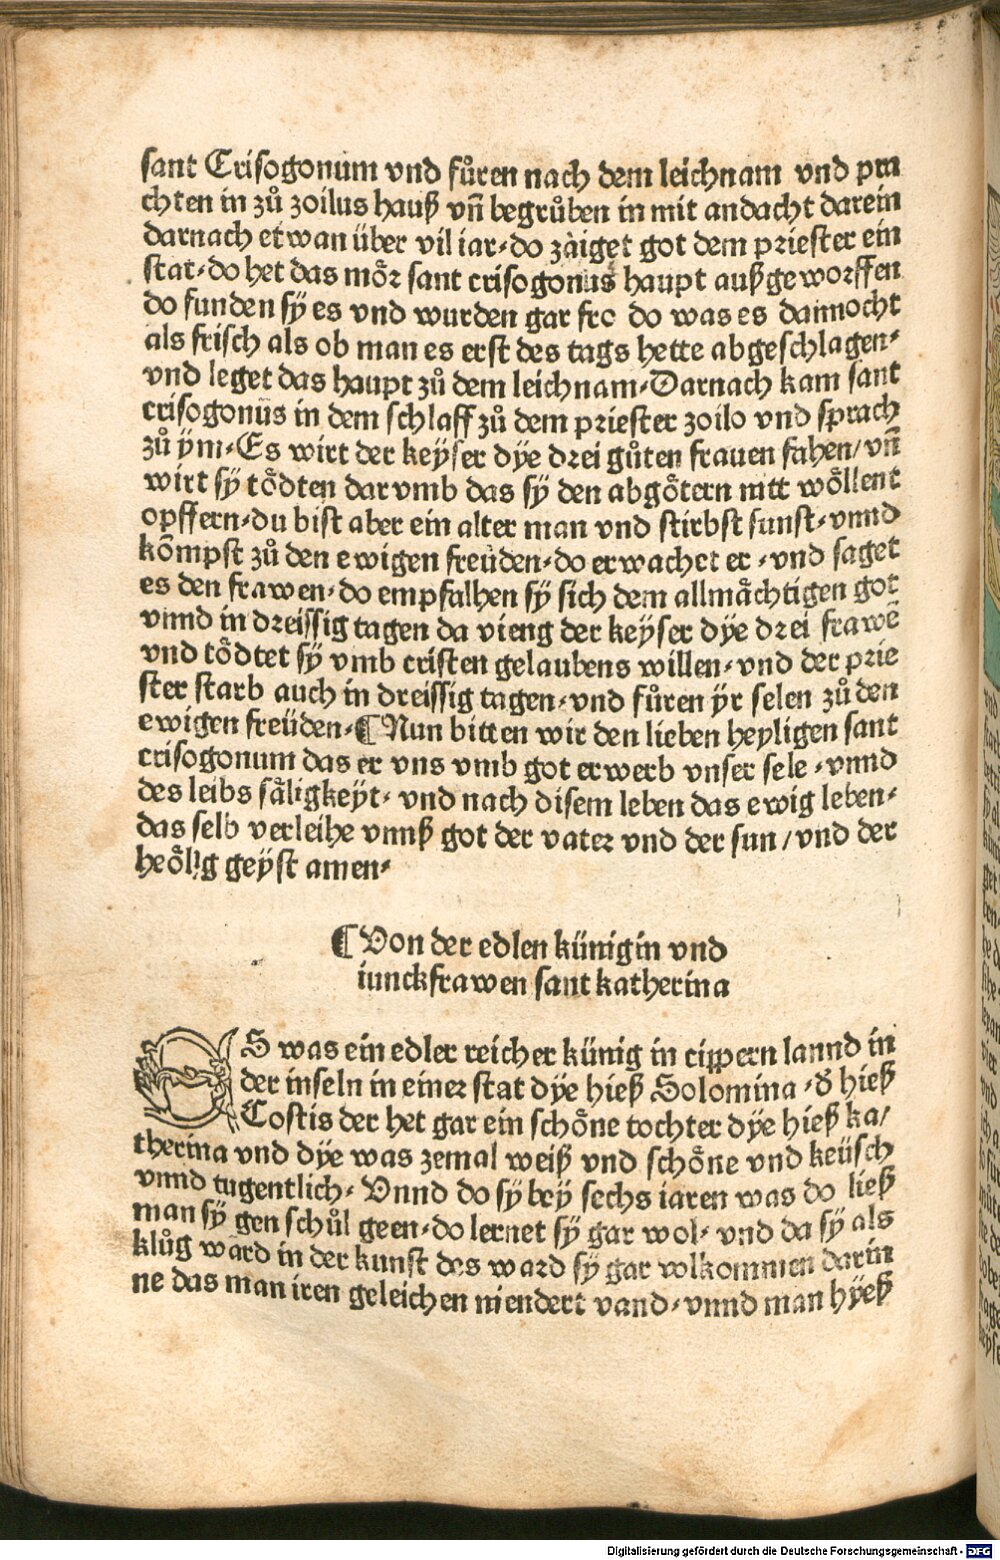 sant Crisogonum vnd fůren nach dem leichnam vnd pra
chten in zů zoilus hauß vñ begrůben in mit andacht darein
darnach etwan über vil iar⸗do zäiget got dem priester ein
stat⸗do het das mör sant crisogonus haupt außgeworffen
do funden sÿ es vnd wurden gar fro do was es dannocht
als frisch als ob man es erst des tags hette abgeschlagen⸗
vnd leget das haupt zů dem leichnam⸗Darnach kam sant
crisogonus in dem schlaff zů dem priester zoilo vnd sprach
zů ÿm⸗Es wirt der keÿser dÿe drei gůten frauen fahen/vñ
wirt sÿ tödten darvmb das sÿ den abgötern nitt wöllent
opffern⸗du bist aber ein alter man vnd stirbst sunst⸗vnnd
kömpst zů den ewigen freüden⸗do erwachet er⸗vnd saget
es den frawen⸗do empfalhen sÿ sich dem allmächtigen got
vnnd in dreissig tagen da vieng der keÿser dÿe drei frawē
vnd tödtet sÿ vmb cristen gelaubens willen⸗vnd der prie
ster starb auch in dreissig tagen⸗vnd fůren ÿr selen zů den
ewigen freüden⸗¶Nun bitten wir den lieben heyligen sant
crisogonum das er vns vmb got erwerb vnser sele⸗vnnd
des leibs säligkeÿt⸗vnd nach disem leben das ewig leben⸗
das selb verleihe vnnß got der vater vnd der sun/vnd der
heölig geÿst amen⸗
¶Von der edlen künigin vnd
iunckfrawen sant katherina
ES was ein edler reicher künig in cippern lannd in
der inseln in einer stat dÿe hieß Solomina⸗ď hieß
Costis der het gar ein schöne tochter dÿe hieß ka/
therina vnd dÿe was zemal weiß vnd schöne vnd keüsch
vnnd tugentlich⸗Vnnd do sÿ beÿ sechs iaren was do ließ
man sÿ gen schůl geen⸗do lernet sÿ gar wol⸗vnd da sÿ als
klůg ward in der kunst des ward sÿ gar volkommen darin
ne das man iren geleichen niendert vand⸗vnnd man hÿeß
Digitalisierung gefördert durch die Deutsche Forschungsgemeinschaft - DFG